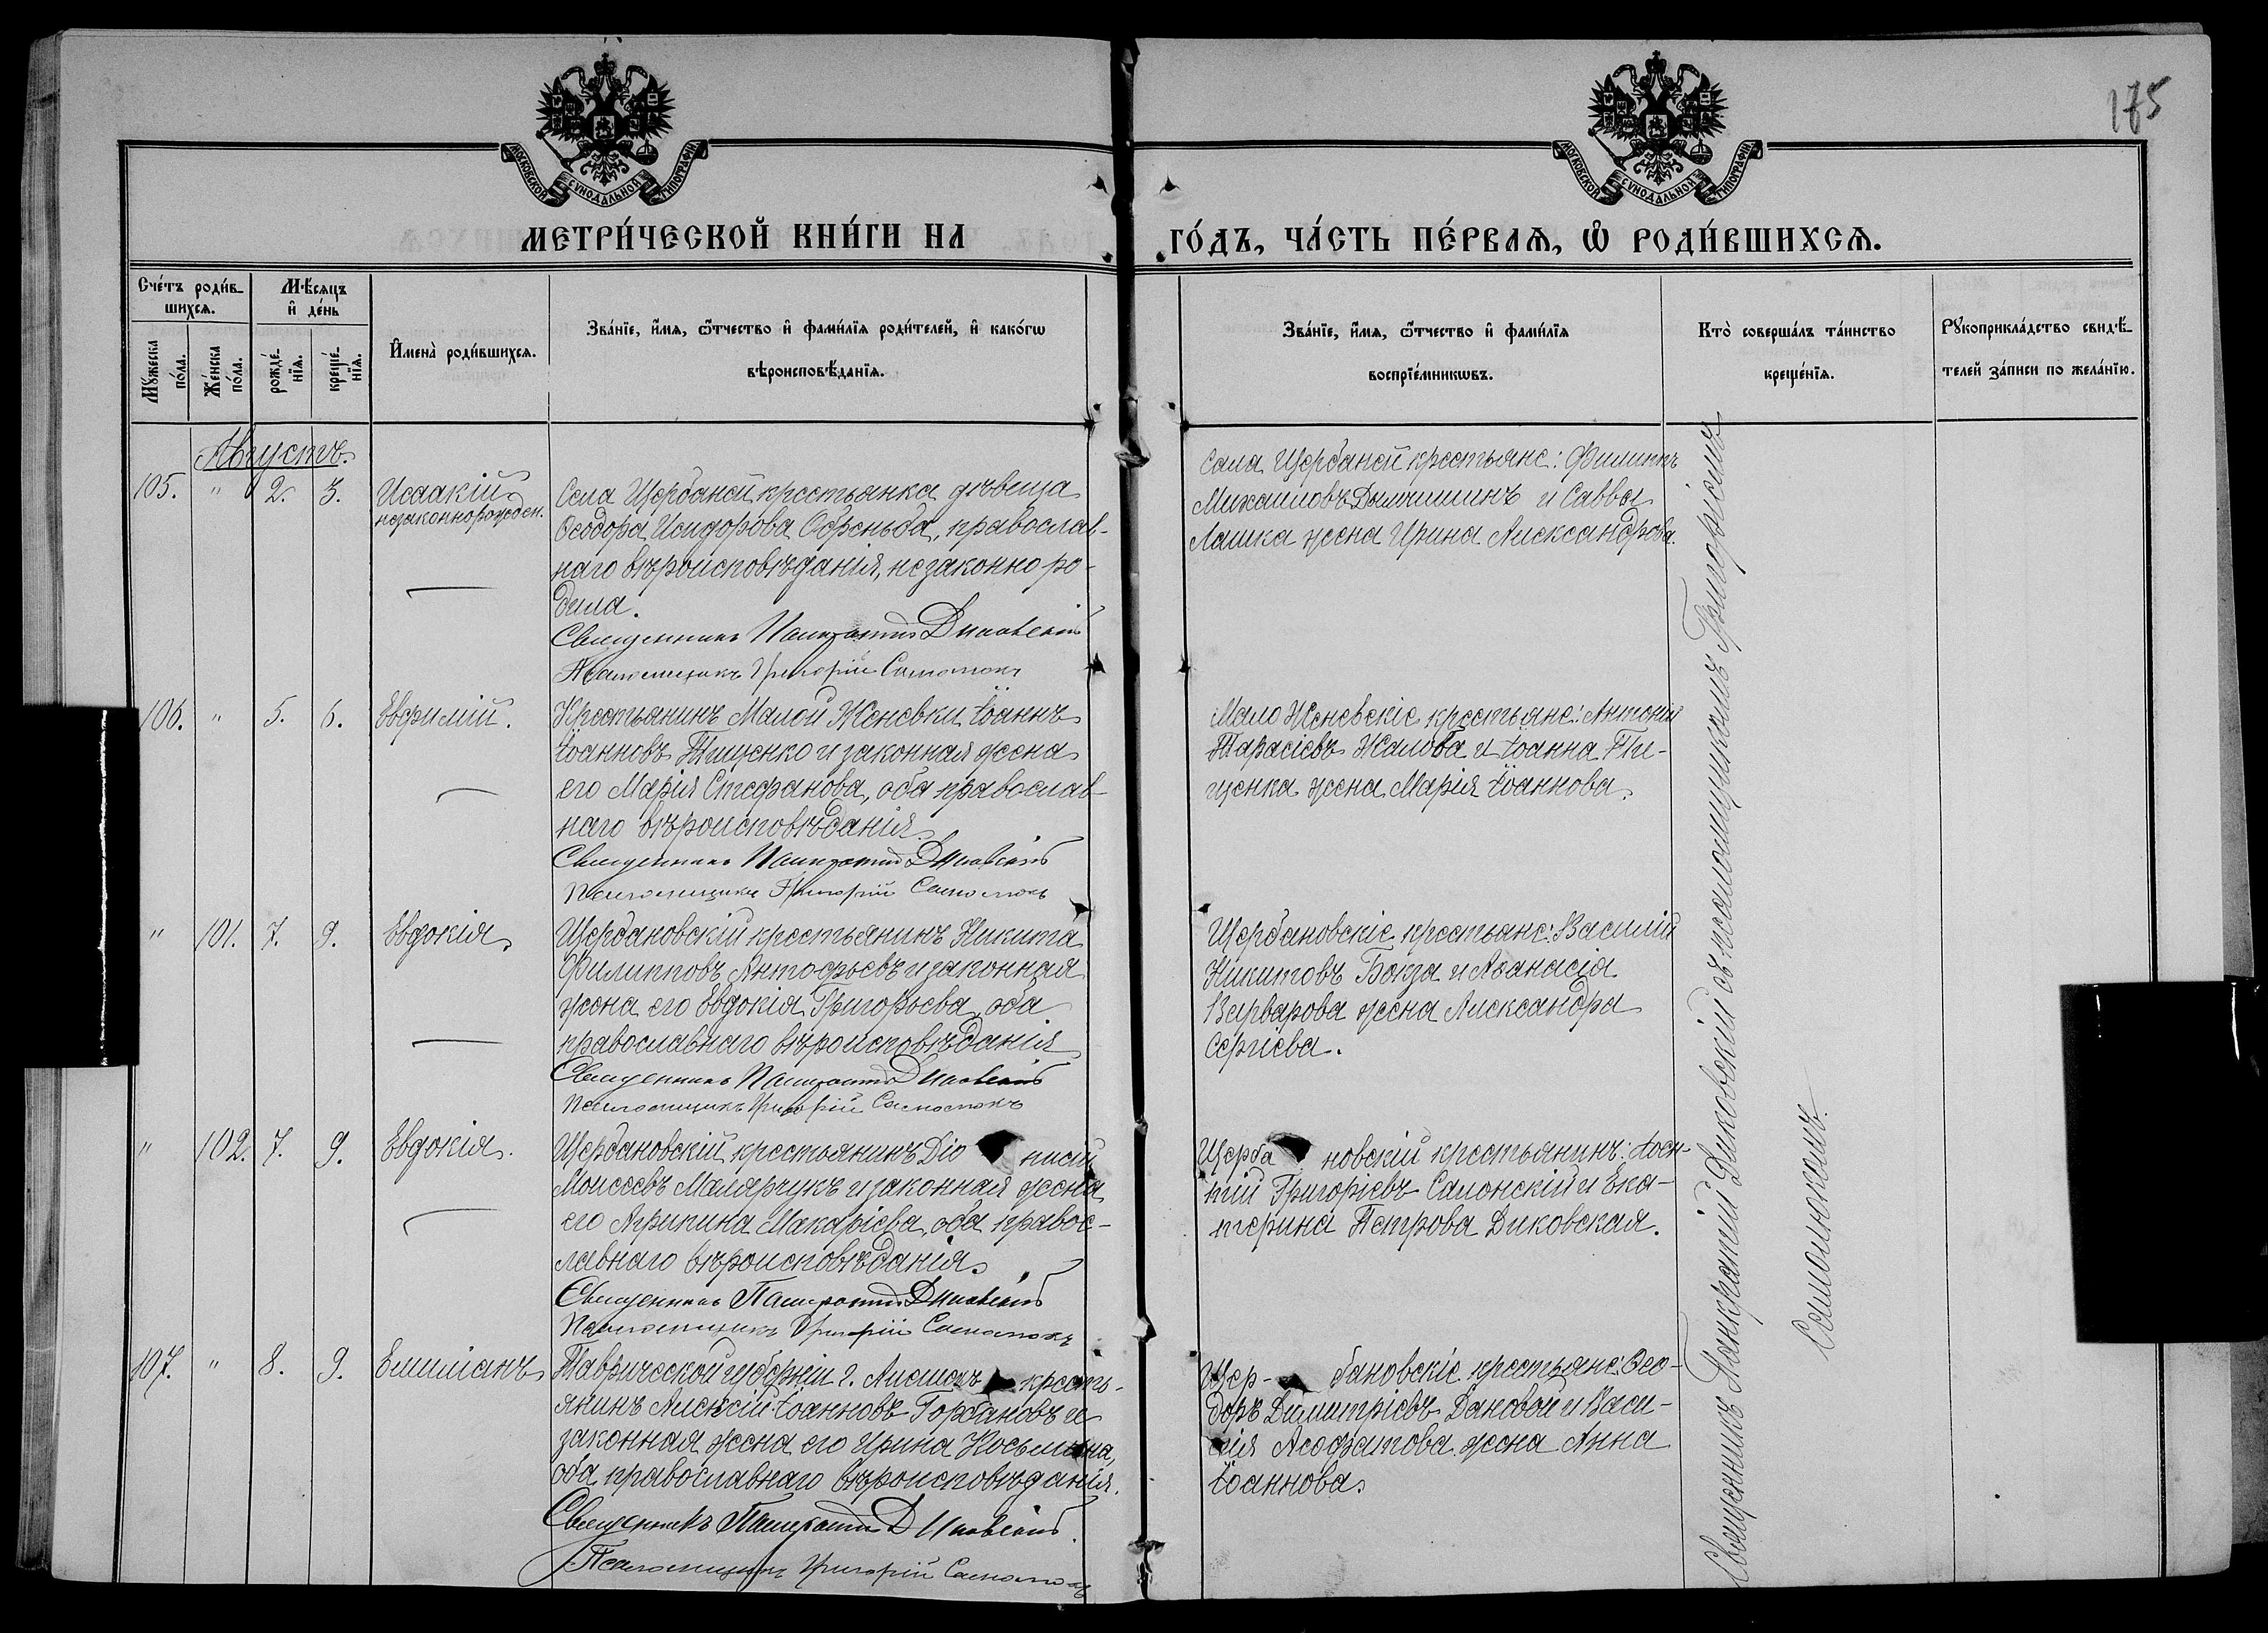 175
МОСКОВСКОЙ СУНОДАЛЬНОЙ ТИПОГРАФІИ
МОСКОВСКОЙ СУНОДАЛЬНОЙ ТИПОГРАФІИ
МЕТРИ́ЧЕСКОЙ КНИ́ГИ НА
ГО́ДЪ, ЧА́СТЬ ПЕ́РВАѦ, Ѡ҆ РОДИ́ВШИХСѦ.
Сче́тъ роди́в-
шихсѧ.
Мѣ́сѧцъ
и҆ де́нь
Мꙋ́жеска
по́ла.
Же́нска
по́ла.
рожде́-
нїѧ.
креще́-
нїѧ.
И҆мена̀ роди́вшихсѧ.
Зва́нїе, и҆́мѧ, ѻ҆́тчество и҆ фами́лїѧ роди́телей, и҆ како́гѡ
вѣроисповѣ́данїѧ.
Зва́нїе, и҆́мѧ, ѻ҆́тчество и҆ фами́лїѧ
воспрїе́мникѡвъ.
Кто̀ соверша́лъ та́инство
креще́нїѧ.
Рꙋкоприкла́дство свидѣ́-
телей за́писи по жела́нїю.
Августъ.
105. " 2. 3. Исаакій
незаконнорожден.
Села Щербаной крестьянка дѣвица
Ѳеодора Исидорова, православ-
наго вѣроисповѣданія, незаконно ро-
дила.
Священникъ Панкратій Диковскій
Псаломщикъ Григорій Самолюкъ
Села Щербаной крестьяне: Филиппъ
Михаиловъ и Саввы
Лашка жена Ирина Александрова.
106. " 5. 6. Евфимій.
Крестьянинъ Малой Женевки Іоаннъ
Іоанновъ Тищенко и законная жена
его Марія Стефанова, оба православ-
наго вѣроисповѣданія.
Священникъ Панкратій Диковскій
Псаломщикъ Григорій Самолюкъ
Мало Женевскіе крестьяне: Антоній
Тарасіевъ Жалоба и Іоанна Ти-
щенка жена Марія Іоаннова.
" 101. 7. 9. Евдокія.
Щербановскій крестьянинъ Никита
Филипповъ Антофьевъ и законная
жена его Евдокія Григорьева, оба
православнаго вѣроисповѣданія
Священникъ Панкратій Диковскій
Псаломщикъ Григорій Самолюкъ
Щербановскіе крестьяне: Василій
Никитовъ и Аѳанасія
Варварова жена Александра
Сергіева.
" 102. 7. 9. Евдокія.
Щербановскій крестьянинъ Діо нисій
Моисеевъ Малярчукъ и законная жена
его Агрипина Макаріева, оба правос-
лавнаго вѣроисповѣданія.
Священникъ Панкратій Диковскій
Псаломщикъ Григорій Самолюкъ
Щерба новскій крестьянинъ:
Григоріевъ и Ека-
терина Петрова Диковская.
107. " 8. 9. Емиліанъ
Таврической губерніи г. Алешекъ кресть-
янинъ Алексій Іоанновъ Горбановъ и
законная жена его Ирина Косьмина,
оба православнаго вѣроисповѣданія.
Священникъ Панкратій Диковскій
Псаломщикъ Григорій Самолюкъ
Щер- бановскіе крестьяне: Ѳео-
доръ Димитріевъ и Васи-
лія жена Анна
Іоаннова.
Священникъ Панкратій Диковскій съ псаломщикомъ Григоріемъ
Самолюкомъ.